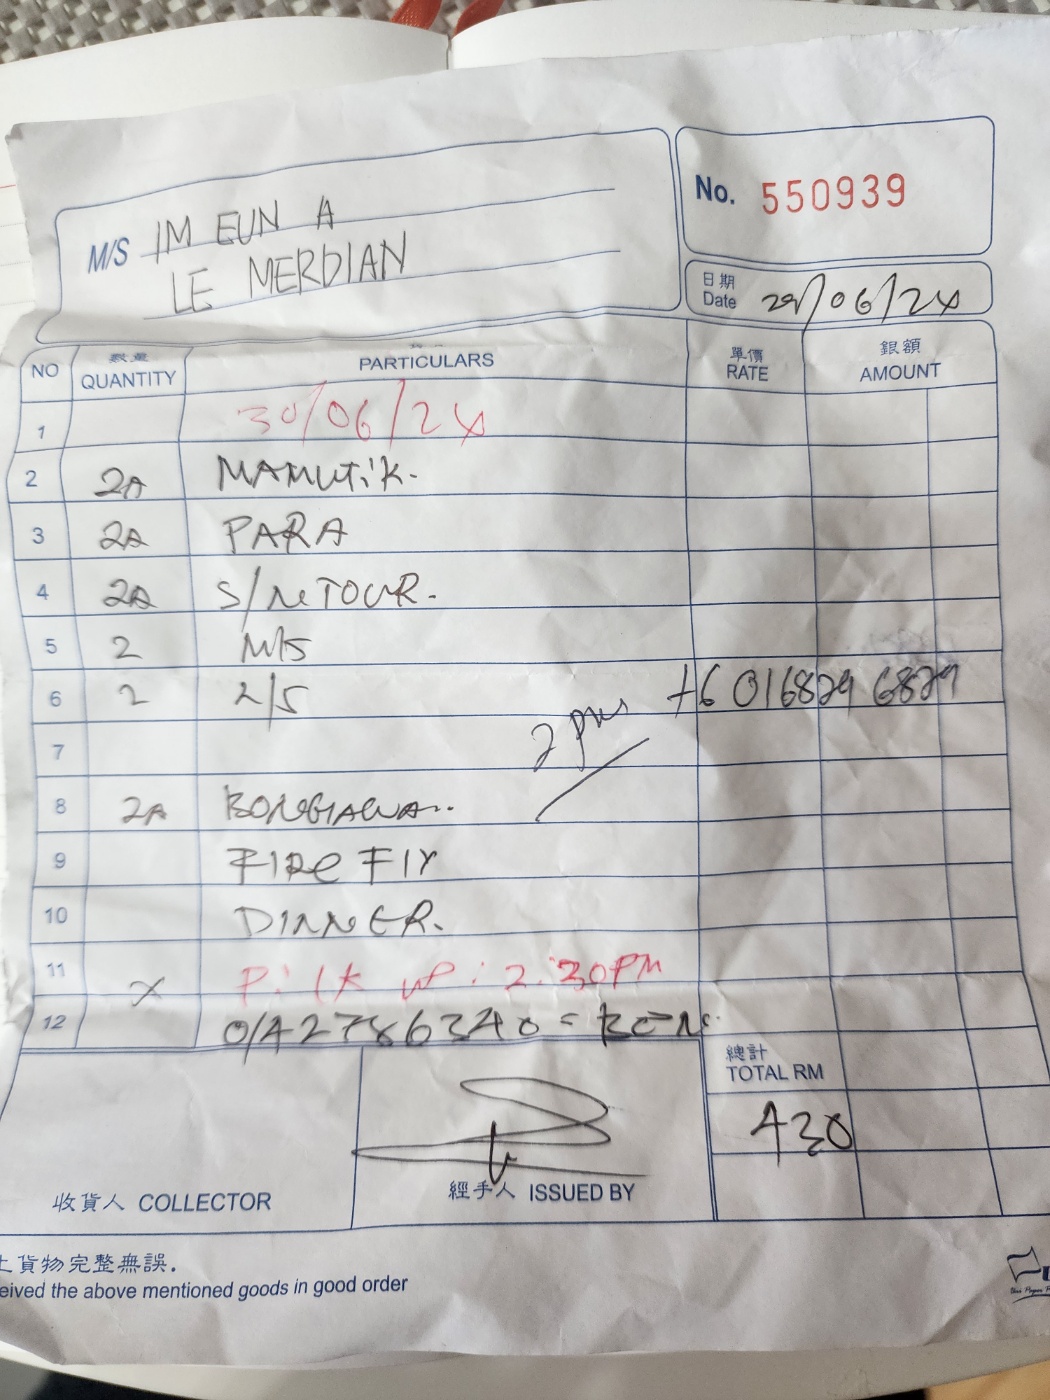 No. 550939
M/S IM EUN A
LE MERDIAN
日期
Date 29/06/24
NO 數量 QUANTITY PARTICULARS 單價 RATE 銀額 AMOUNT
1 30/06/24
2 2A MAMUTiK.
3 2A PARA
4 2A S/NETOUR.
5 2 M/S
6 2 L/S +6 016829 6829
7 2 pm
8 2A
9 FIRE FLY
10 DINNER.
11 PiCK UP: 2:30PM
12 0142786340 = BEN
總計
TOTAL RM
430
收貨人 COLLECTOR
經手人 ISSUED BY
上貨物完整無誤.
eived the above mentioned goods in good order